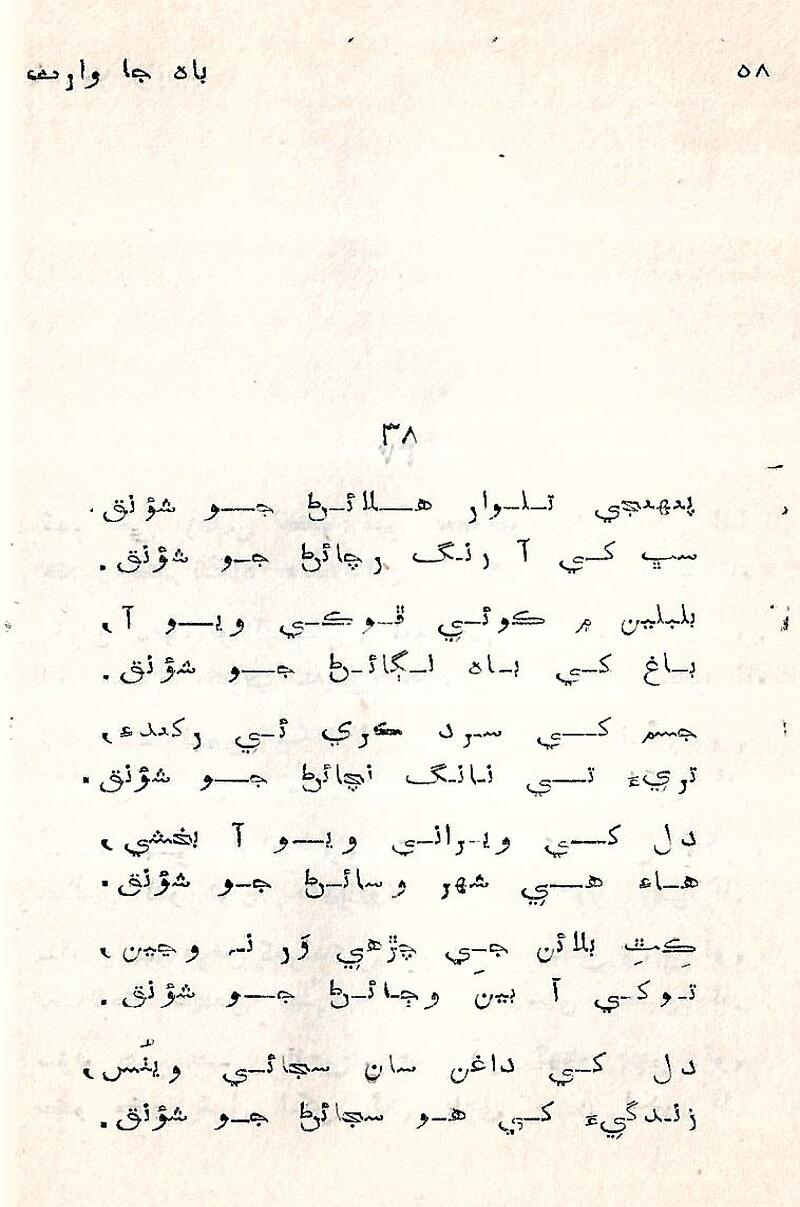 ٥٨ باہ جا وارث
٣٨
پنھنجي تلوار ھلائڻ جو شؤنق.
سڀ کي آ رنگ رچائڻ جو شؤنق.
بلبلين ۾ ڪوئي ڦوڪي ويو آ،
باغ کي باہ لڳائڻ جو شؤنق.
جسم کي سرد ڪري ئي رکندءِ،
تريءَ تي نانگ نچائڻ جو شؤنق.
دل کي ويراني ويو آ بخشي،
ھاءِ ھي شھر وسائڻ جو شؤنق.
ڪِٿِ بلائن جي چڙھي وَر نہ وڃين،
توکي آ بينَ وڄائڻ جو شؤنق.
دل کي داغن سان سجائي ويٺُس،
زندگيءَ کي ھو سجائڻ جو شؤنق.